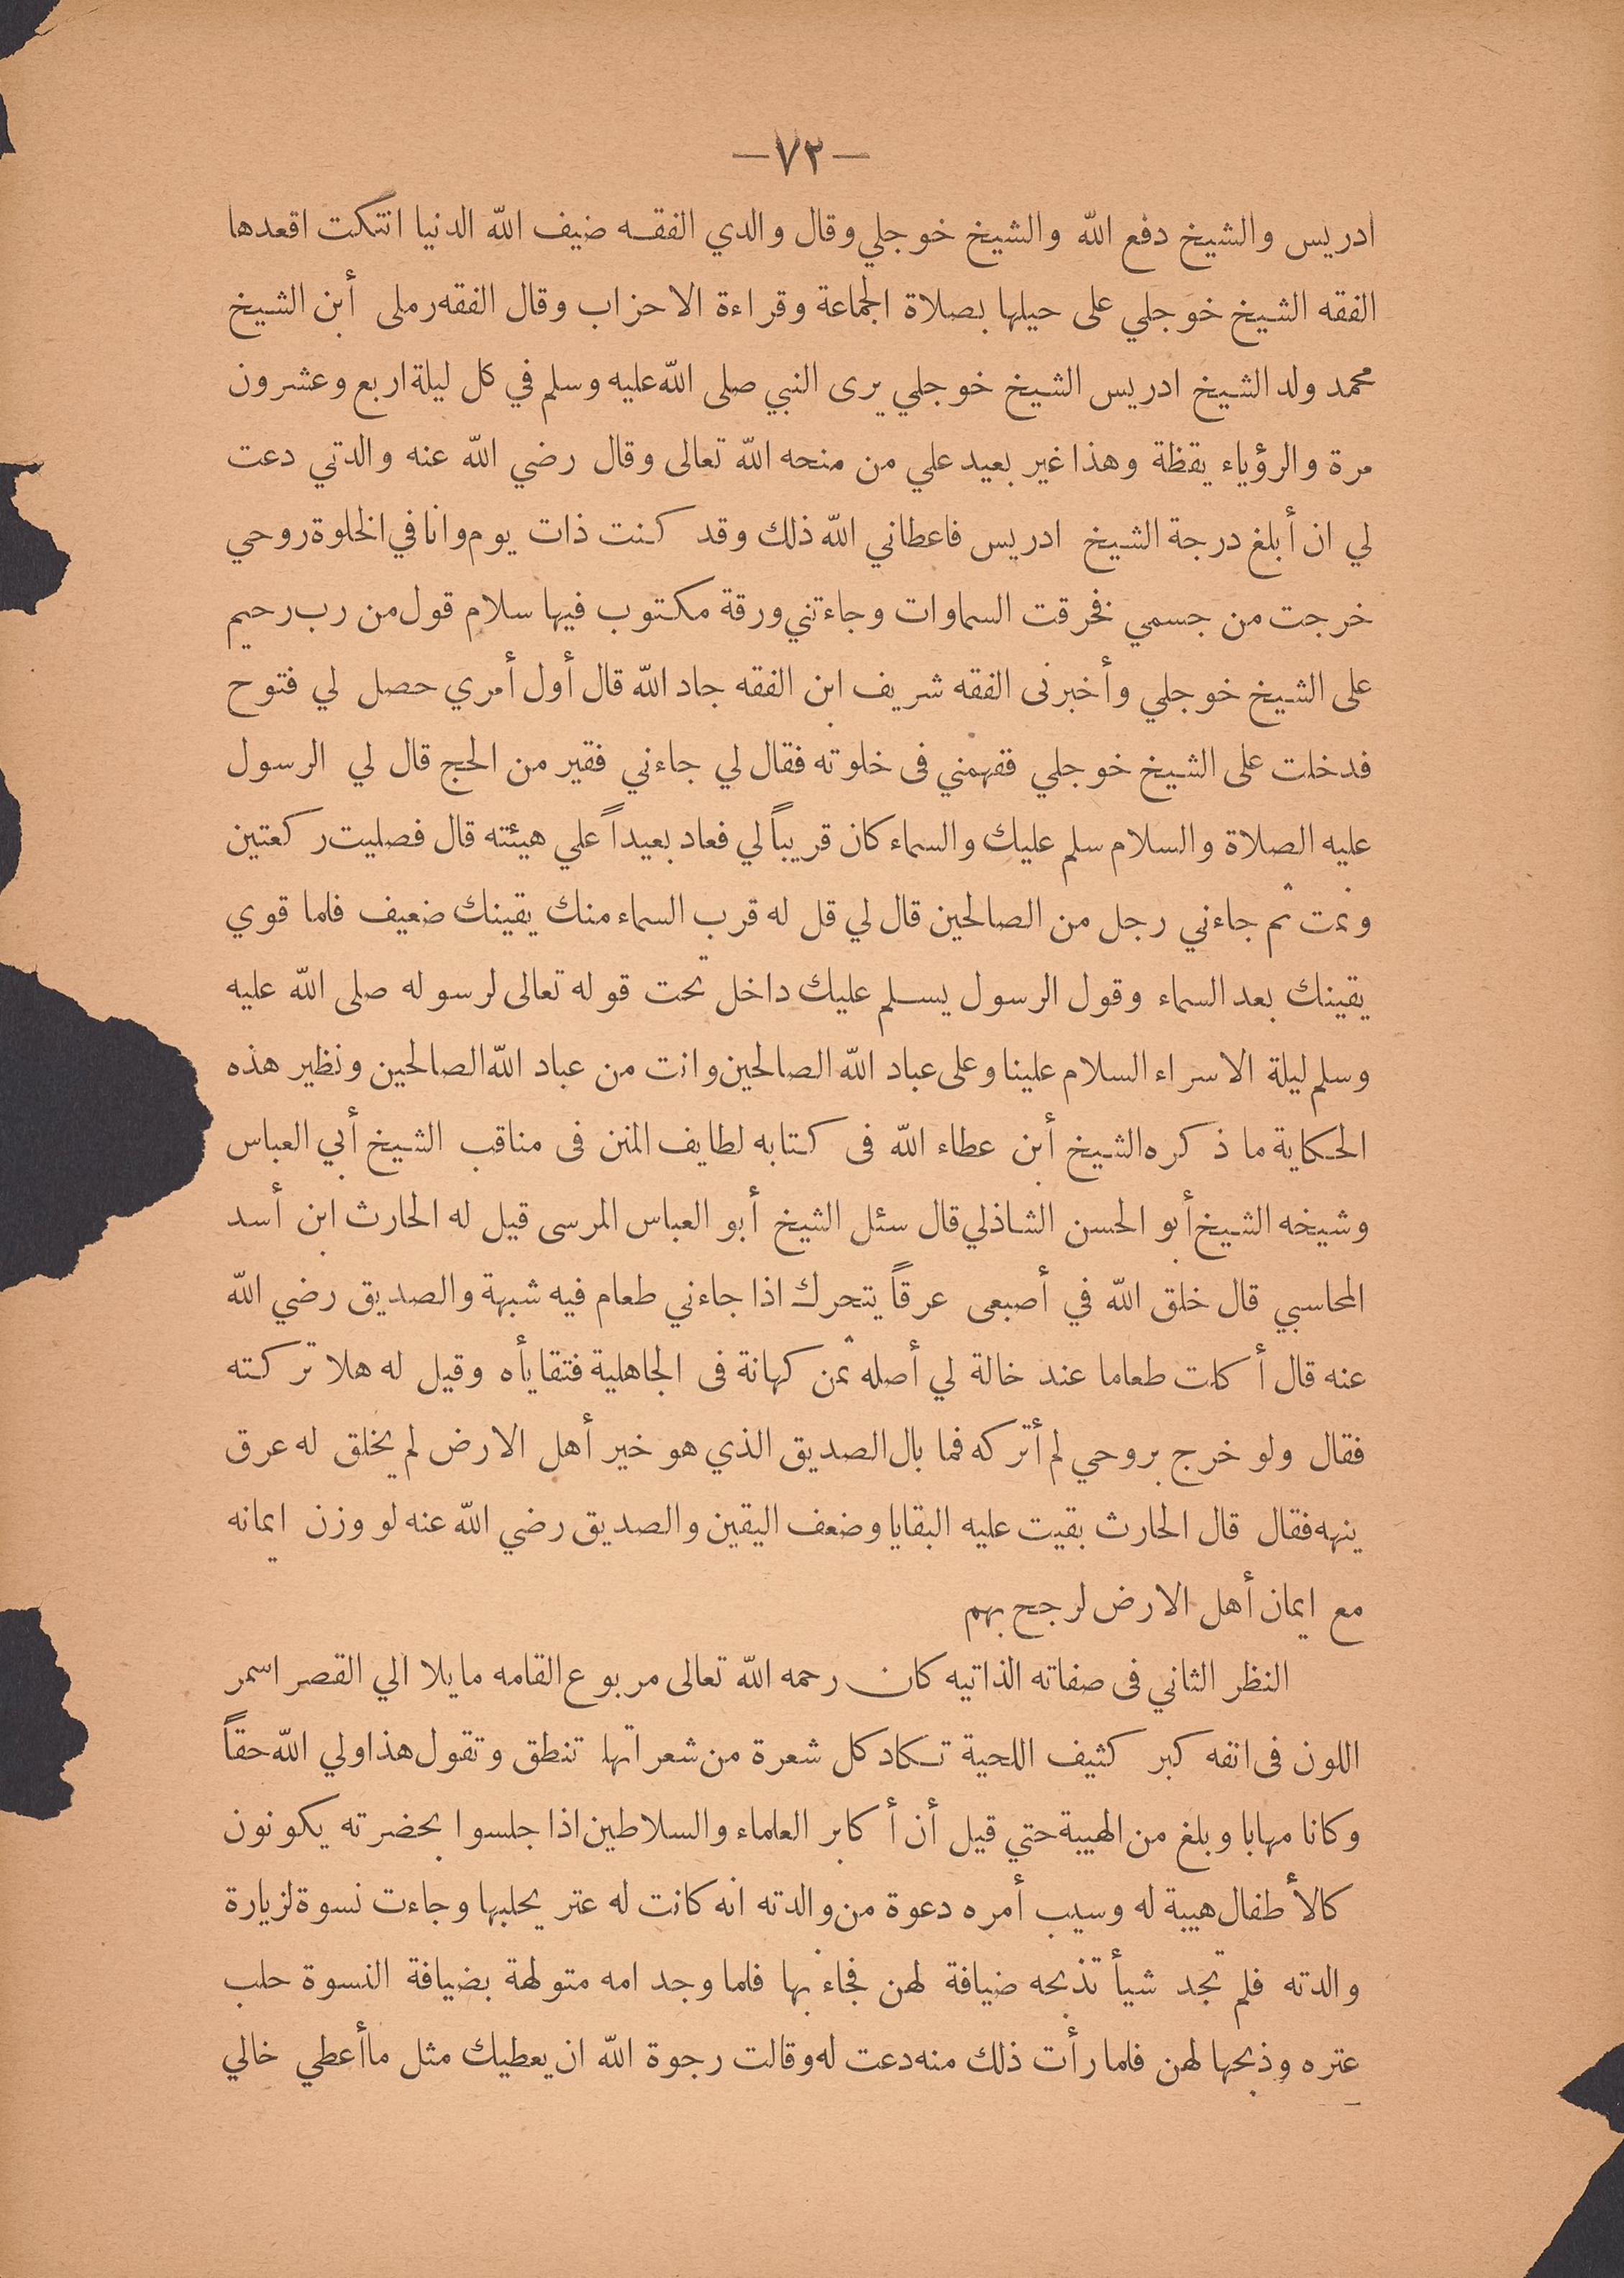 —٧٢—
ادريس والشيخ دفع الله والشيخ خوجلي وقال والدي الفقه ضيف الله الدنيا انتكت اقعدها
الفقه الشيخ خوجلي على حيلها بصلاة الجماعة وقراءة الاحزاب وقال الفقه رملى أبن الشيخ
محمد ولد الشيخ ادريس الشيخ خوجلي يرى النبي صلى الله عليه وسلم في كل ليلة اربع وعشرون
مرة والرؤياء يقظة وهذا غير بعيد علي من منحه الله تعالى وقال رضي الله عنه والدتي دعت
لي ان أبلغ درجة الشيخ ادريس فاعطاني الله ذلك وقد كنت ذات يوم وانا في الخلوة روحي
خرجت من جسمي فخرقت السماوات وجاءتني ورقة مكتوب فيها سلام قول من رب رحيم
على الشيخ خوجلي وأخبرنى الفقه شريف ابن الفقه جاد الله قال أول أمري حصل لي فتوح
فدخلت على الشيخ خوجلي ففهمني فى خلوته فقال لي جاءني فقير من الحج قال لي الرسول
عليه الصلاة والسلام سلم عليك والسماء كان قريباً لي فعاد بعيداً علي هيئته قال فصليت ركعتين
ونمت ثم جاءني رجل من الصالحين قال لي قل له قرب السماء منك يقينك ضعيف فلما قوي
يقينك بعد السماء وقول الرسول يسلم عليك داخل تحت قوله تعالى لرسوله صلى الله عليه
وسلم ليلة الاسراء السلام علينا وعلى عباد الله الصالحين وانت من عباد الله الصالحين ونظير هذه
الحكاية ما ذكره الشيخ أبن عطاء الله فى كتابه لطايف المنن فى مناقب الشيخ أبي العباس
وشيخه الشيخ أبو الحسن الشاذلي قال سئل الشيخ أبو العباس المرسى قيل له الحارث ابن أسد
المحاسبي قال خلق الله في أصبعى عرقاً يتحرك اذا جاءني طعام فيه شبهة والصديق رضي الله
عنه قال أكلت طعاما عند خالة لي أصله ثمن كهانة فى الجاهلية فتقايأه وقيل له هلا تركته
فقال ولو خرج بروحي لم أتركه فما بال الصديق الذي هو خير أهل الارض لم يخلق له عرق
ينهه فقال قال الحارث بقيت عليه البقايا وضعف اليقين والصديق رضي الله عنه لو وزن ايمانه
مع ايمان أهل الارض لرجح بهم
النظر الثاني فى صفاته الذاتيه كان رحمه الله تعالى مربوع القامه مايلا الي القصر اسمر
اللون فى انفه كبر كثيف اللحية تكاد كل شعرة من شعراتها تنطق وتقول هذا ولي الله حقاً
وكانا مهابا وبلغ من الهيبة حتي قيل أن أكابر العلماء والسلاطين اذا جلسوا بحضرته يكونون
كالأطفال هيبة له وسبب أمره دعوة من والدته انه كانت له عتر يحلبها وجاءت نسوة لزيارة
والدته فلم تجد شيأ تذبحه ضيافة لهن فجاء بها فلما وجد امه متولهة بضيافة النسوة حلب
عتره وذبحها لهن فلما رأت ذلك منه دعت له وقالت رجوة الله ان يعطيك مثل ما أعطي خالي